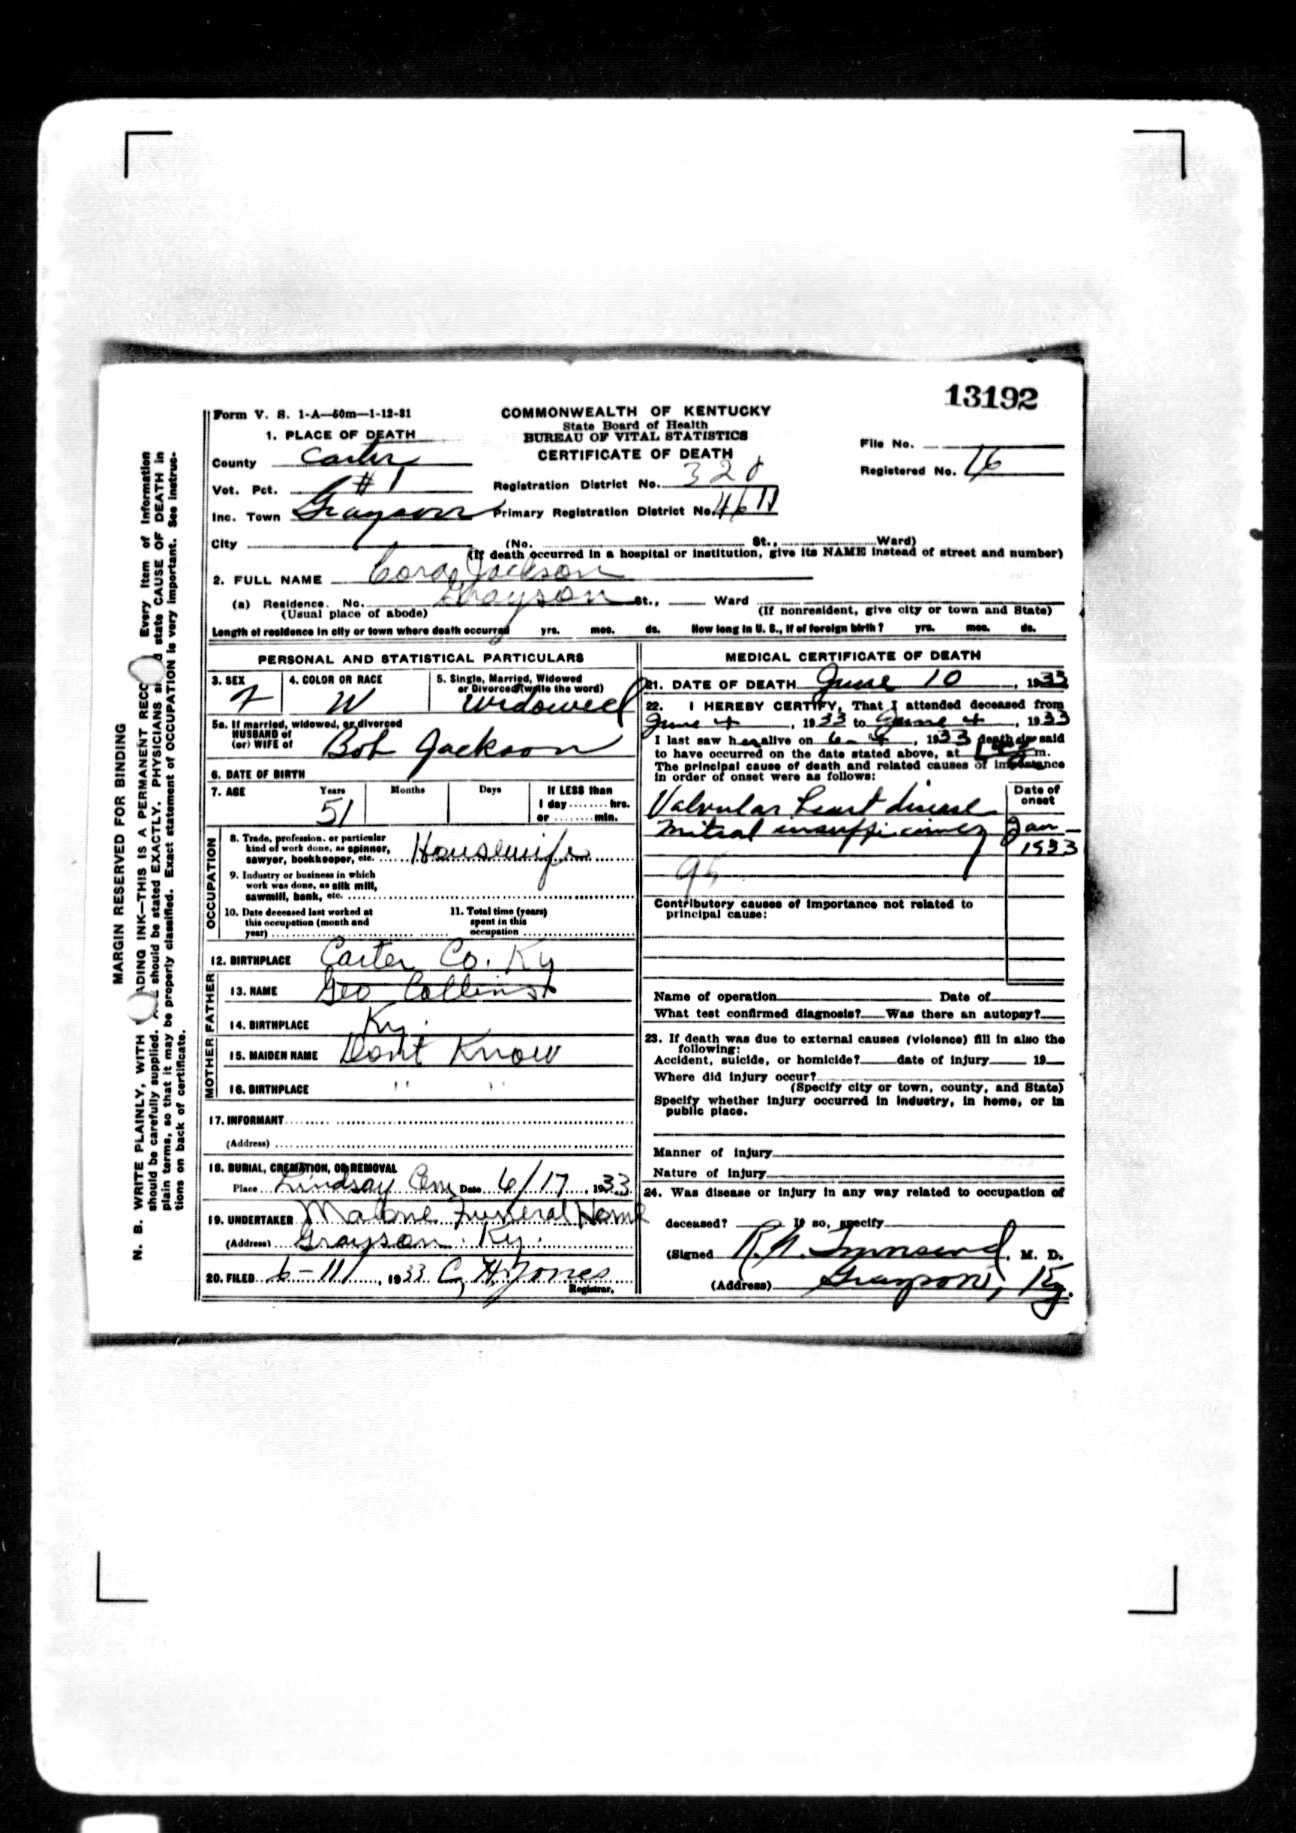 13192
Form V. S. 1-A—60m—1-12-31
COMMONWEALTH OF KENTUCKY
State Board of Health
BUREAU OF VITAL STATISTICS
CERTIFICATE OF DEATH
File No.
Registered No. 16
1. PLACE OF DEATH
County Carter
Vot. Pct. #1
Registration District No. 320
Inc. Town Grayson
Primary Registration District No.
City (No. St., Ward)
(If death occurred in a hospital or institution, give its NAME instead of street and number)
2. FULL NAME Cora Jackson
(a) Residence. No. Grayson St., Ward
(Usual place of abode)
(If nonresident, give city or town and State)
Length of residence in city or town where death occurred yrs. mos. ds. How long in U. S., if of foreign birth? yrs. mos. ds.
PERSONAL AND STATISTICAL PARTICULARS
3. SEX F
4. COLOR OR RACE W
5. Single, Married, Widowed
or Divorced (write the word)
Widowed
5a. If married, widowed, or divorced
HUSBAND of
(or) WIFE of Bob Jackson
6. DATE OF BIRTH
7. AGE Years Months Days If LESS than
51
1 day ........ hrs.
or ........ min.
OCCUPATION
8. Trade, profession, or particular
kind of work done, as spinner,
sawyer, bookkeeper, etc. Housewife
9. Industry or business in which
work was done, as silk mill,
sawmill, bank, etc.
10. Date deceased last worked at
this occupation (month and
year)
11. Total time (years)
spent in this
occupation
12. BIRTHPLACE Carter Co. Ky
FATHER
13. NAME Geo Collins
14. BIRTHPLACE Ky.
MOTHER
15. MAIDEN NAME Dont Know
16. BIRTHPLACE " "
17. INFORMANT
(Address)
18. BURIAL, CREMATION, OR REMOVAL
Place Lindsay Cem Date 6/17, 1933
19. UNDERTAKER Malone Funeral Home
(Address) Grayson Ky.
20. FILED 6-11, 1933 C. H. Jones
Registrar.
MEDICAL CERTIFICATE OF DEATH
21. DATE OF DEATH June 10, 1933
22. I HEREBY CERTIFY, That I attended deceased from
June 4, 1933 to June 4, 1933
I last saw her alive on 6-4, 1933 death is said
to have occurred on the date stated above, at m.
The principal cause of death and related causes of importance
in order of onset were as follows:
Date of
onset
Valvular heart disease
Mitral insufficiency Jan-
1933
Contributory causes of importance not related to
principal cause:
Name of operation Date of
What test confirmed diagnosis? Was there an autopsy?
23. If death was due to external causes (violence) fill in also the
following:
Accident, suicide, or homicide? date of injury 19
Where did injury occur?
(Specify city or town, county, and State)
Specify whether injury occurred in industry, in home, or in
public place.
Manner of injury
Nature of injury
24. Was disease or injury in any way related to occupation of
deceased? If so, specify
(Signed R. N. Townsend, M. D.
(Address) Grayson, Ky.
MARGIN RESERVED FOR BINDING
N. B. WRITE PLAINLY, WITH ADING INK—THIS IS A PERMANENT RECO Every item of information
should be carefully supplied. should be stated EXACTLY. PHYSICIANS state CAUSE OF DEATH in
plain terms, so that it may be properly classified. Exact statement of OCCUPATION is very important. See instruc-
tions on back of certificate.